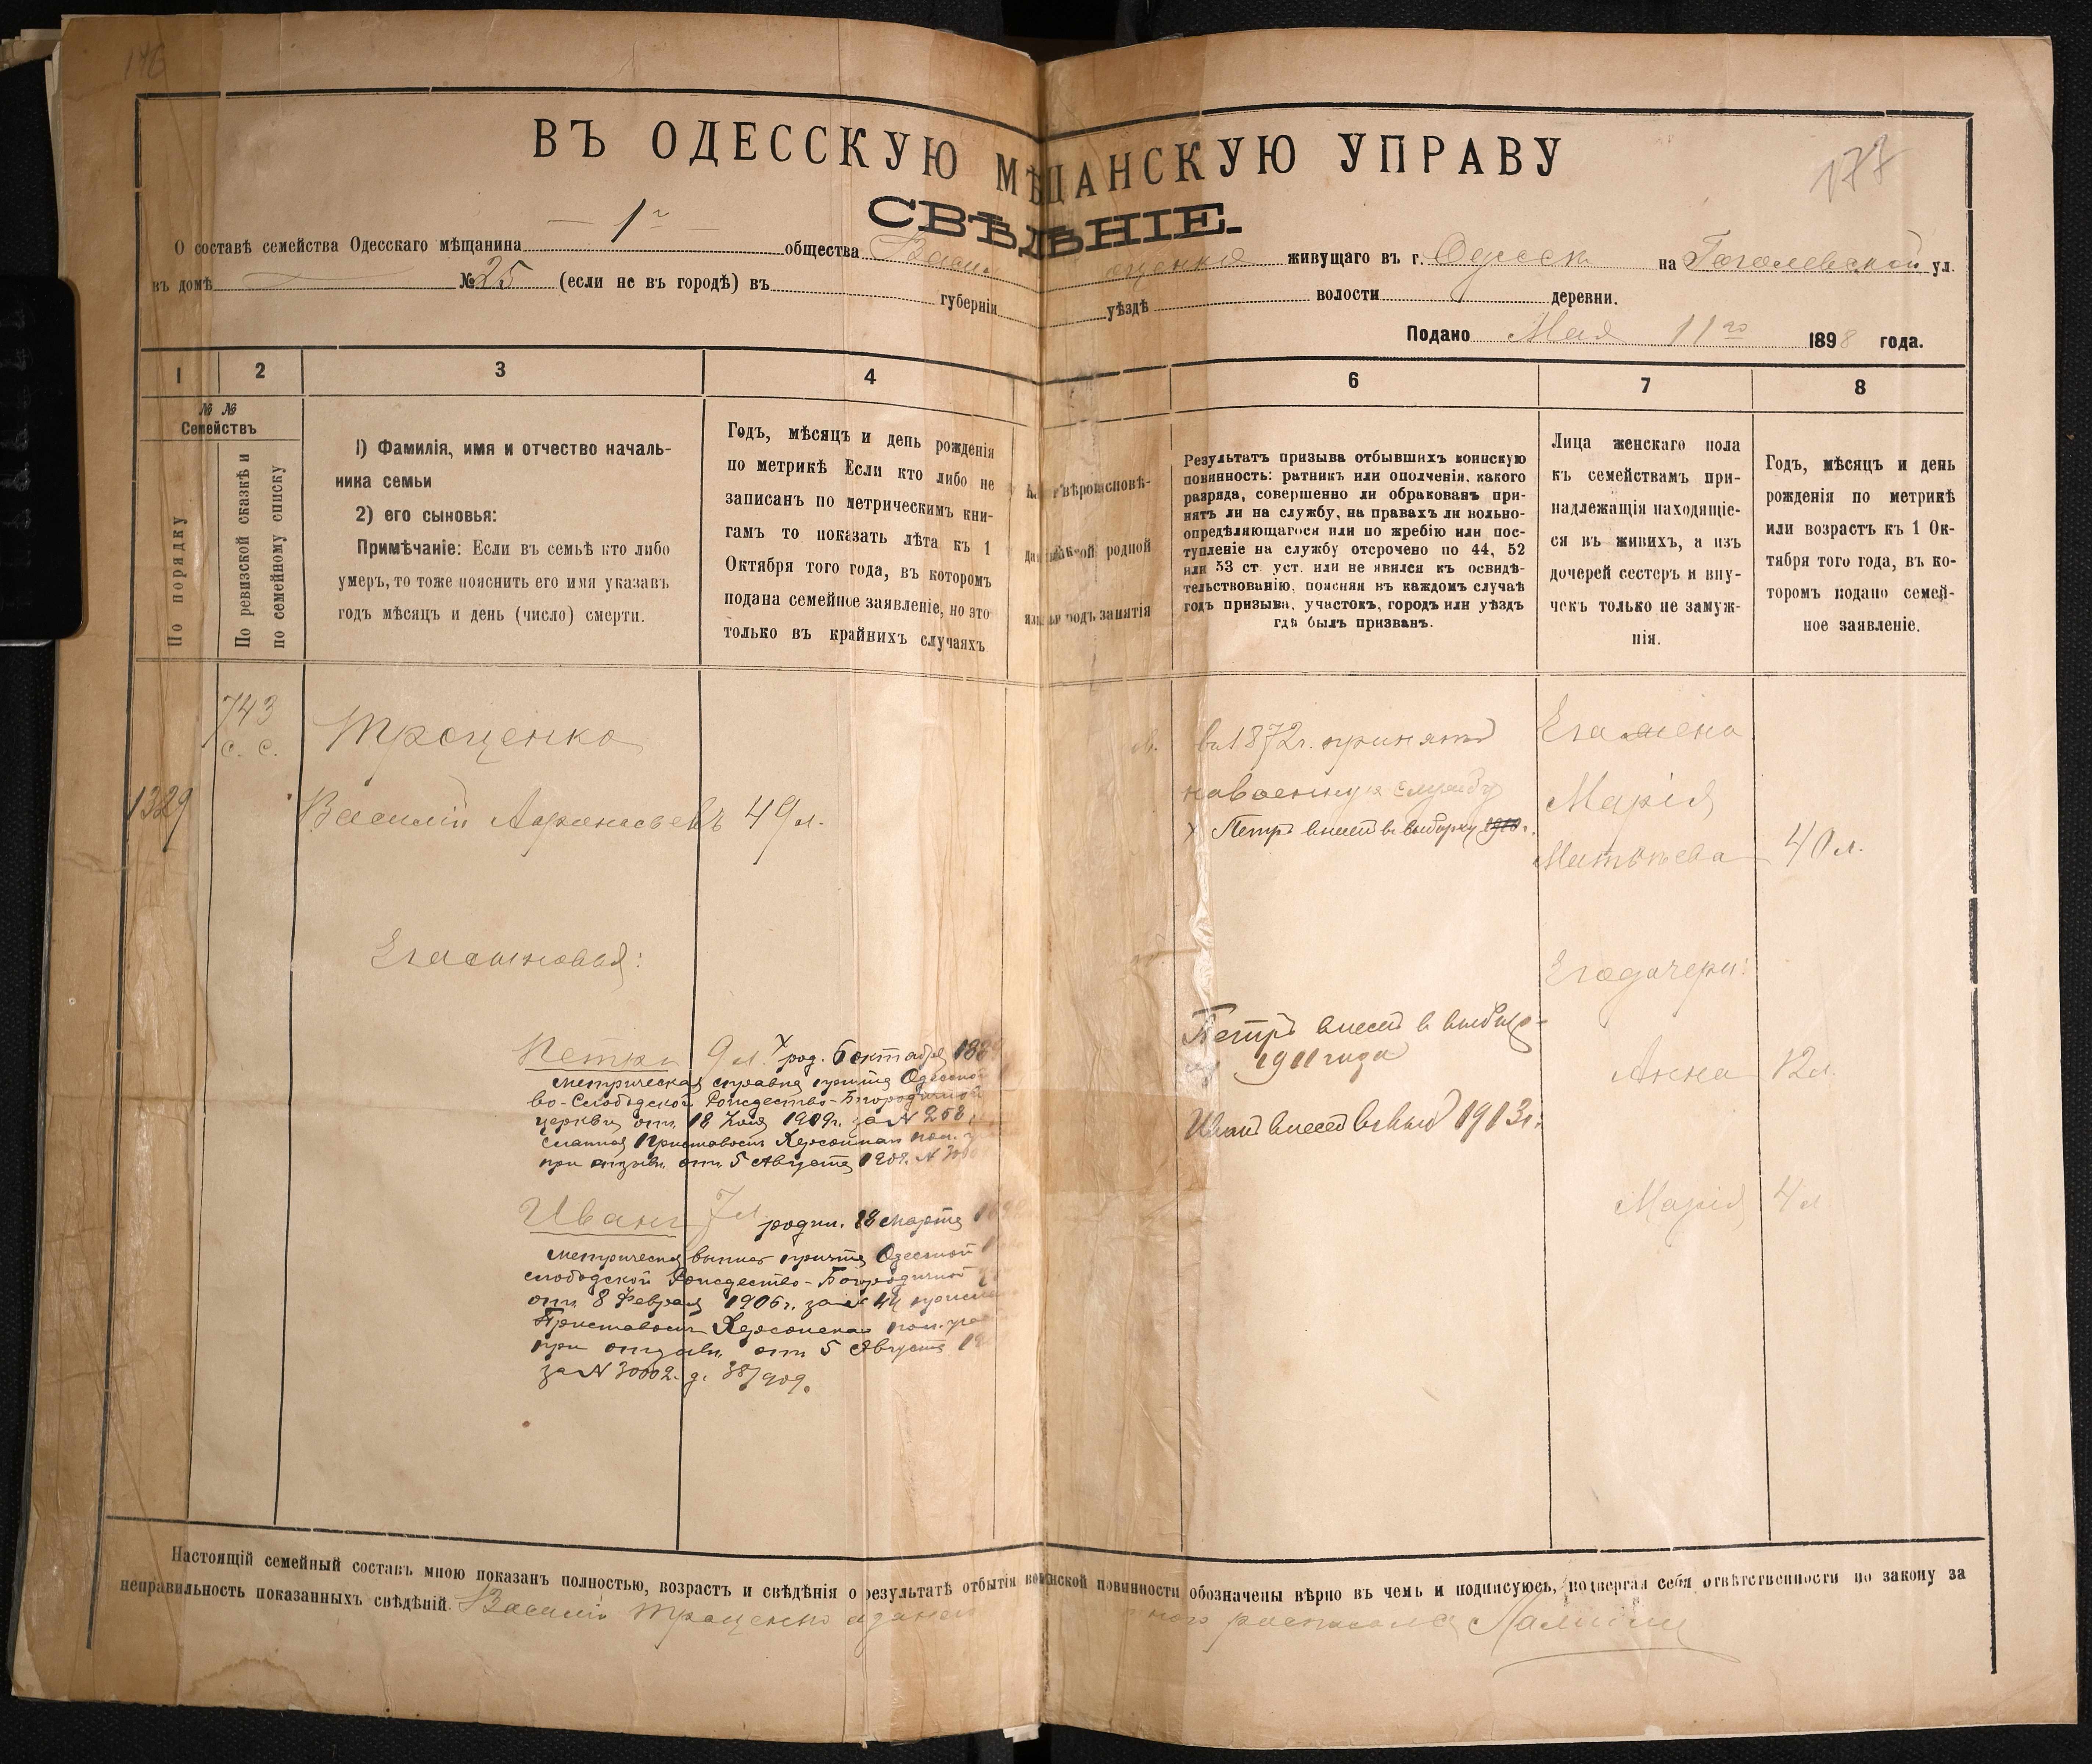 176
177
ВЪ ОДЕССКУЮ МѢЩАНСКУЮ УПРАВУ
СВѢДѢНІЕ.
О составѣ семейства Одесскаго мѣщанина 1го общества живущаго въ г. Одессѣ на Гоголевской ул.
въ домѣ № 25 (если не въ городѣ) въ губерніи уѣздѣ волости деревни.
Подано Мая 11го 1898 года.
1 2 3 4 6 7 8
№ №
Семействъ
По порядку
По ревизской сказкѣ и
по семейному списку
1) Фамилія, имя и отчество началь-
ника семьи
2) его сыновья:
Примѣчаніе: Если въ семьѣ кто либо
умеръ, то тоже пояснить его имя указавъ
годъ мѣсяцъ и день (число) смерти.
Годъ, мѣсяцъ и день рожденія
по метрикѣ Если кто либо не
записанъ по метрическимъ кни-
гамъ то показать лѣта къ 1
Октября того года, въ которомъ
подана семейное заявленіе, но это
только въ крайнихъ случаяхъ
вѣроисповѣ-
родной
родъ занятія
Результатъ призыва отбывшихъ воинскую
повинность: ратникъ или ополченія, какого
разряда, совершенно ли обракованъ при-
нятъ ли на службу, на правахъ ли вольно-
опредѣляющагося или по жребію или пос-
тупленіе на службу отсрочено по 44, 52
или 53 ст. уст. или не явился къ освидѣ-
тельствованію, поясняя въ каждомъ случаѣ
годъ призыва, участокъ, городъ или уѣздъ
гдѣ былъ призванъ.
Лица женскаго пола
къ семействамъ при-
надлежащія находящіе-
ся въ живихъ, а изъ
дочерей сестеръ и вну-
чекъ только не замуж-
нія.
Годъ, мѣсяцъ и день
рожденія по метрикѣ
или возрастъ къ 1 Ок-
тября того года, въ ко-
торомъ подано семей-
ное заявленіе.
743
с. с.
Троценко
1329
Василій Афанасьевъ 49 л.
в 1872 г. принятъ
на военную службу
х Петръ внесенъ въ выборку 1910 г.
Его жена
Марія
Матвѣева 40 л.
Его сыновья:
Его дочери:
Петръ 9 л. х род. 6 октября 188
Метрическая справка причта Одесской
во-Слободской Рождество-Богородичной
церкви отъ 18 Іюля 1909 г. за № 258
Приставомъ Херсонскаго пол. уч
при отзывѣ отъ 5 Августа 1909. №
Петръ внесенъ въ выбор-
1911 года
Анна 12 л.
Иванъ внесенъ въ выб 1913 г.
Иванъ 7 л родил. 18 Марта
Метрическая выпись причта Одесской
слободской Рождество-Богородичной
отъ 8 Февраля 1906 г. за № 44
Приставомъ Херсонскаго пол. уч
при отзывѣ отъ 5 Августа
за № 30002. д. 38/909.
Марія 4 л
Настоящій семейный составъ мною показанъ полностью, возрастъ и свѣдѣнія о результатѣ отбытія воинской повинности обозначены вѣрно въ чемъ и подписуюсь, подвергая себя отвѣтственности по закону за
неправильность показанныхъ свѣдѣній. Василій Троценко